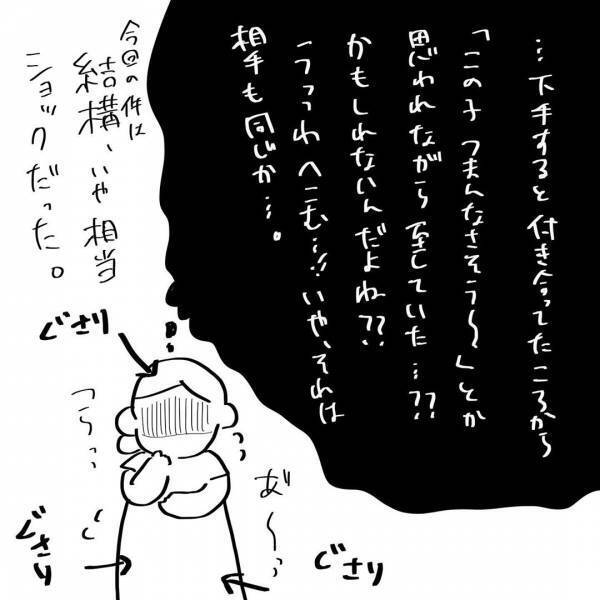 …下手すると付き合ってたころから
「この子つまんなさそう〜」とか
思われながら至していた…??
かもしれないんだよね??
うっっわへこむ…!!いや、それは
相手も同じか…。
今回の件は
結構、いや相当
ショックだった。
ぐさり
つらっ
あ〜っ
ぐさり
ぐさり